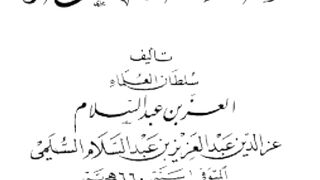 تأليف
سلطان العلماء
العز بن عبد السلام
عز الدين عبد العزيز بن عبد السلام السلمي
المتوفى سنة ٦٦٠ هـ